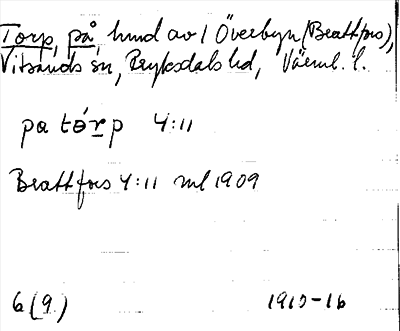 Torp, på, hmd av 1 Överbyn (Brattfors),
Vitsands sn, Fryksdals hd, Värml. l.
pa tórp 4:11
Brattfors 4:11 ml 1909
6(9) 1915-16